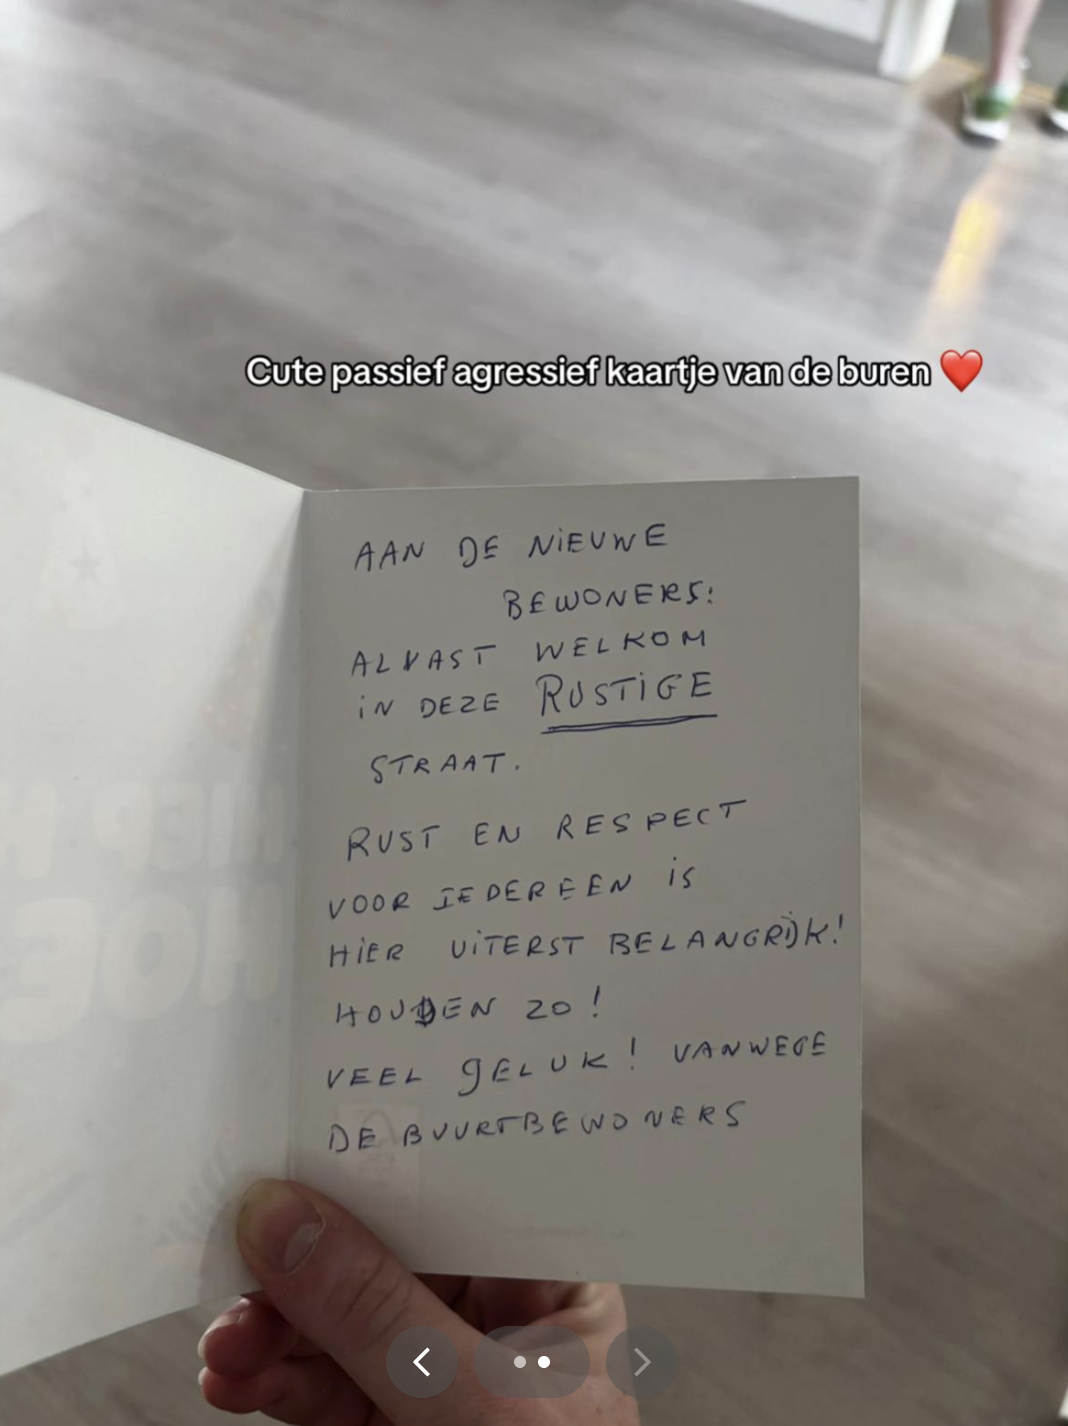 Cute passief agressief kaartje van de buren ❤️
AAN DE NIEUWE
BEWONERS:
ALVAST WELKOM
IN DEZE RUSTIGE
STRAAT.
RUST EN RESPECT
VOOR IEDEREEN IS
HIER UITERST BELANGRIJK!
HOUDEN ZO!
VEEL GELUK! VANWEGE
DE BUURTBEWONERS